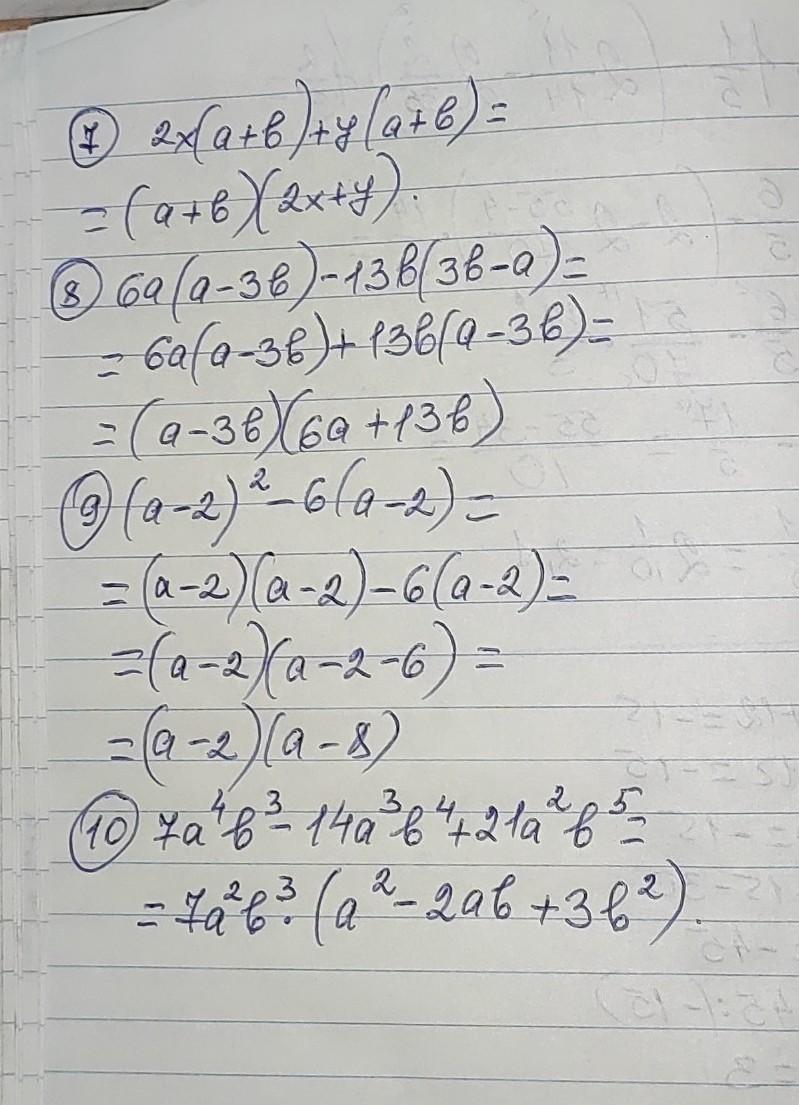 7 2x(a+b)+y(a+b)=
=(a+b)(2x+y).
8 6a(a-3b)-13b(3b-a)=
=6a(a-3b)+13b(a-3b)=
=(a-3b)(6a+13b)
9 (a-2)²-6(a-2)=
=(a-2)(a-2)-6(a-2)=
=(a-2)(a-2-6)=
=(a-2)(a-8)
10 7a⁴b³-14a³b⁴+21a²b⁵=
=7a²b³·(a²-2ab+3b²).